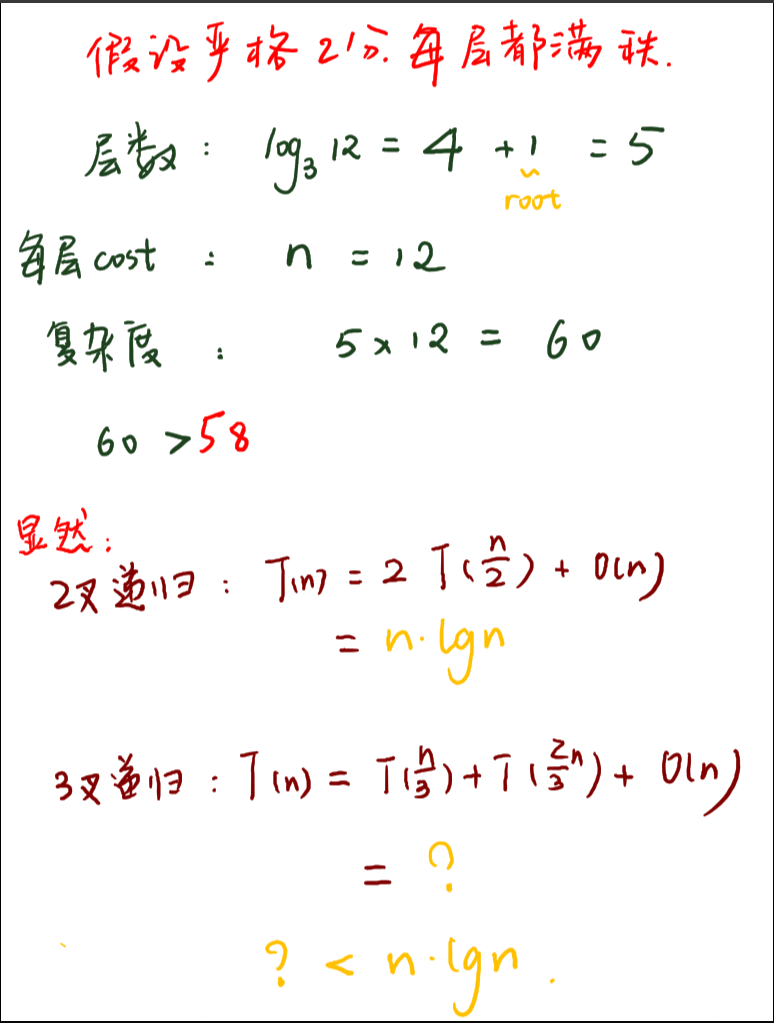 假设严格2分.每层都满秩.
层数: log₃12 = 4 +1 = 5
root
每层cost : n = 12
复杂度 : 5 × 12 = 60
60 > 58
显然:
2叉递归: T(n) = 2 T(n/2) + O(n)
= n·lgn
3叉递归: T(n) = T(n/3) + T(2/3 n) + O(n)
= ?
? < n·lgn.